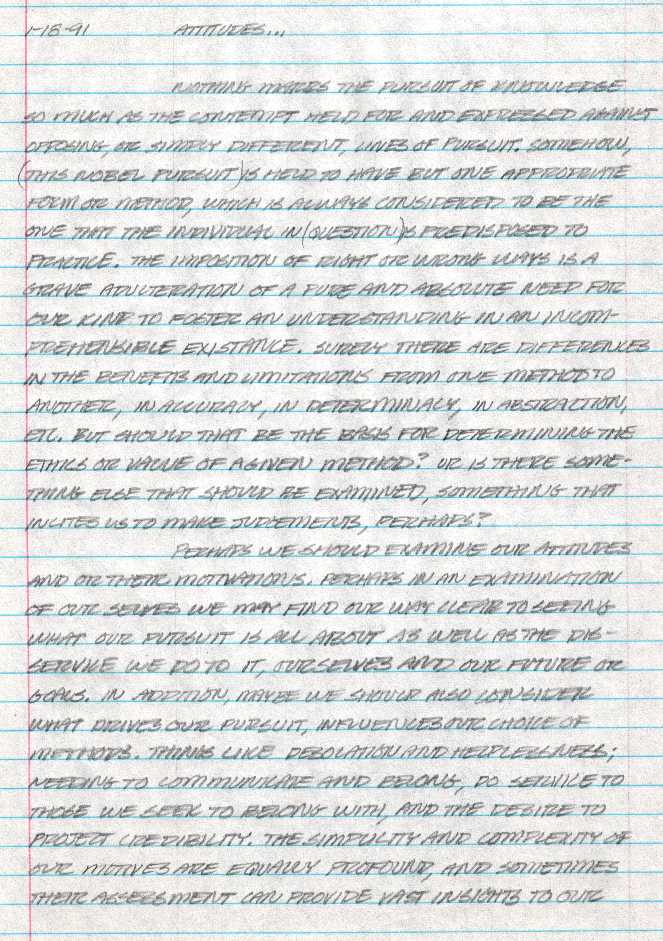 1-18-91 ATTITUDES...
NOTHING MARRS THE PURSUIT OF KNOWLEDGE
SO MUCH AS THE CONTEMPT HELD FOR AND EXPRESSED AGAINST
OPPOSING, OR SIMPLY DIFFERENT, LINES OF PURSUIT. SOMEHOW,
(THIS NOBEL PURSUIT) IS HELD TO HAVE BUT ONE APPROPRIATE
FORM OR METHOD, WHICH IS ALWAYS CONSIDERED TO BE THE
ONE THAT THE INDIVIDUAL IN (QUESTION) IS PREDISPOSED TO
PRACTICE. THE IMPOSITION OF RIGHT OR WRONG WAYS IS A
GRAVE ADULTERATION OF A PURE AND ABSOLUTE NEED FOR
OUR KIND TO FOSTER AN UNDERSTANDING IN AN INCOM-
PREHENSIBLE EXISTANCE. SURELY THERE ARE DIFFERENCES
IN THE BENEFITS AND LIMITATIONS FROM ONE METHOD TO
ANOTHER, IN ACCURACY, IN DETERMINACY, IN ABSTRACTION,
ETC. BUT SHOULD THAT BE THE BASIS FOR DETERMINING THE
ETHICS OR VALUE OF A GIVEN METHOD? OR IS THERE SOME-
THING ELSE THAT SHOULD BE EXAMINED, SOMETHING THAT
INCITES US TO MAKE JUDGEMENTS, PERHAPS?
PERHAPS WE SHOULD EXAMINE OUR ATTITUDES
AND OR THEIR MOTIVATIONS. PERHAPS IN AN EXAMINATION
OF OUR SELVES WE MAY FIND OUR WAY CLEAR TO SEEING
WHAT OUR PURSUIT IS ALL ABOUT AS WELL AS THE DIS-
SERVICE WE DO TO IT, OURSELVES AND OUR FUTURE OR
GOALS. IN ADDITION, MAYBE WE SHOULD ALSO CONSIDER
WHAT DRIVES OUR PURSUIT, INFLUENCES OUR CHOICE OF
METHODS. THINGS LIKE DESOLATION AND HELPLESSNESS;
NEEDING TO COMMUNICATE AND BELONG, DO SERVICE TO
THOSE WE SEEK TO BELONG WITH, AND THE DESIRE TO
PROJECT CREDIBILITY. THE SIMPLICITY AND COMPLEXITY OF
OUR MOTIVES ARE EQUALLY PROFOUND, AND SOMETIMES
THEIR ASSESSMENT CAN PROVIDE VAST INSIGHTS TO OUR